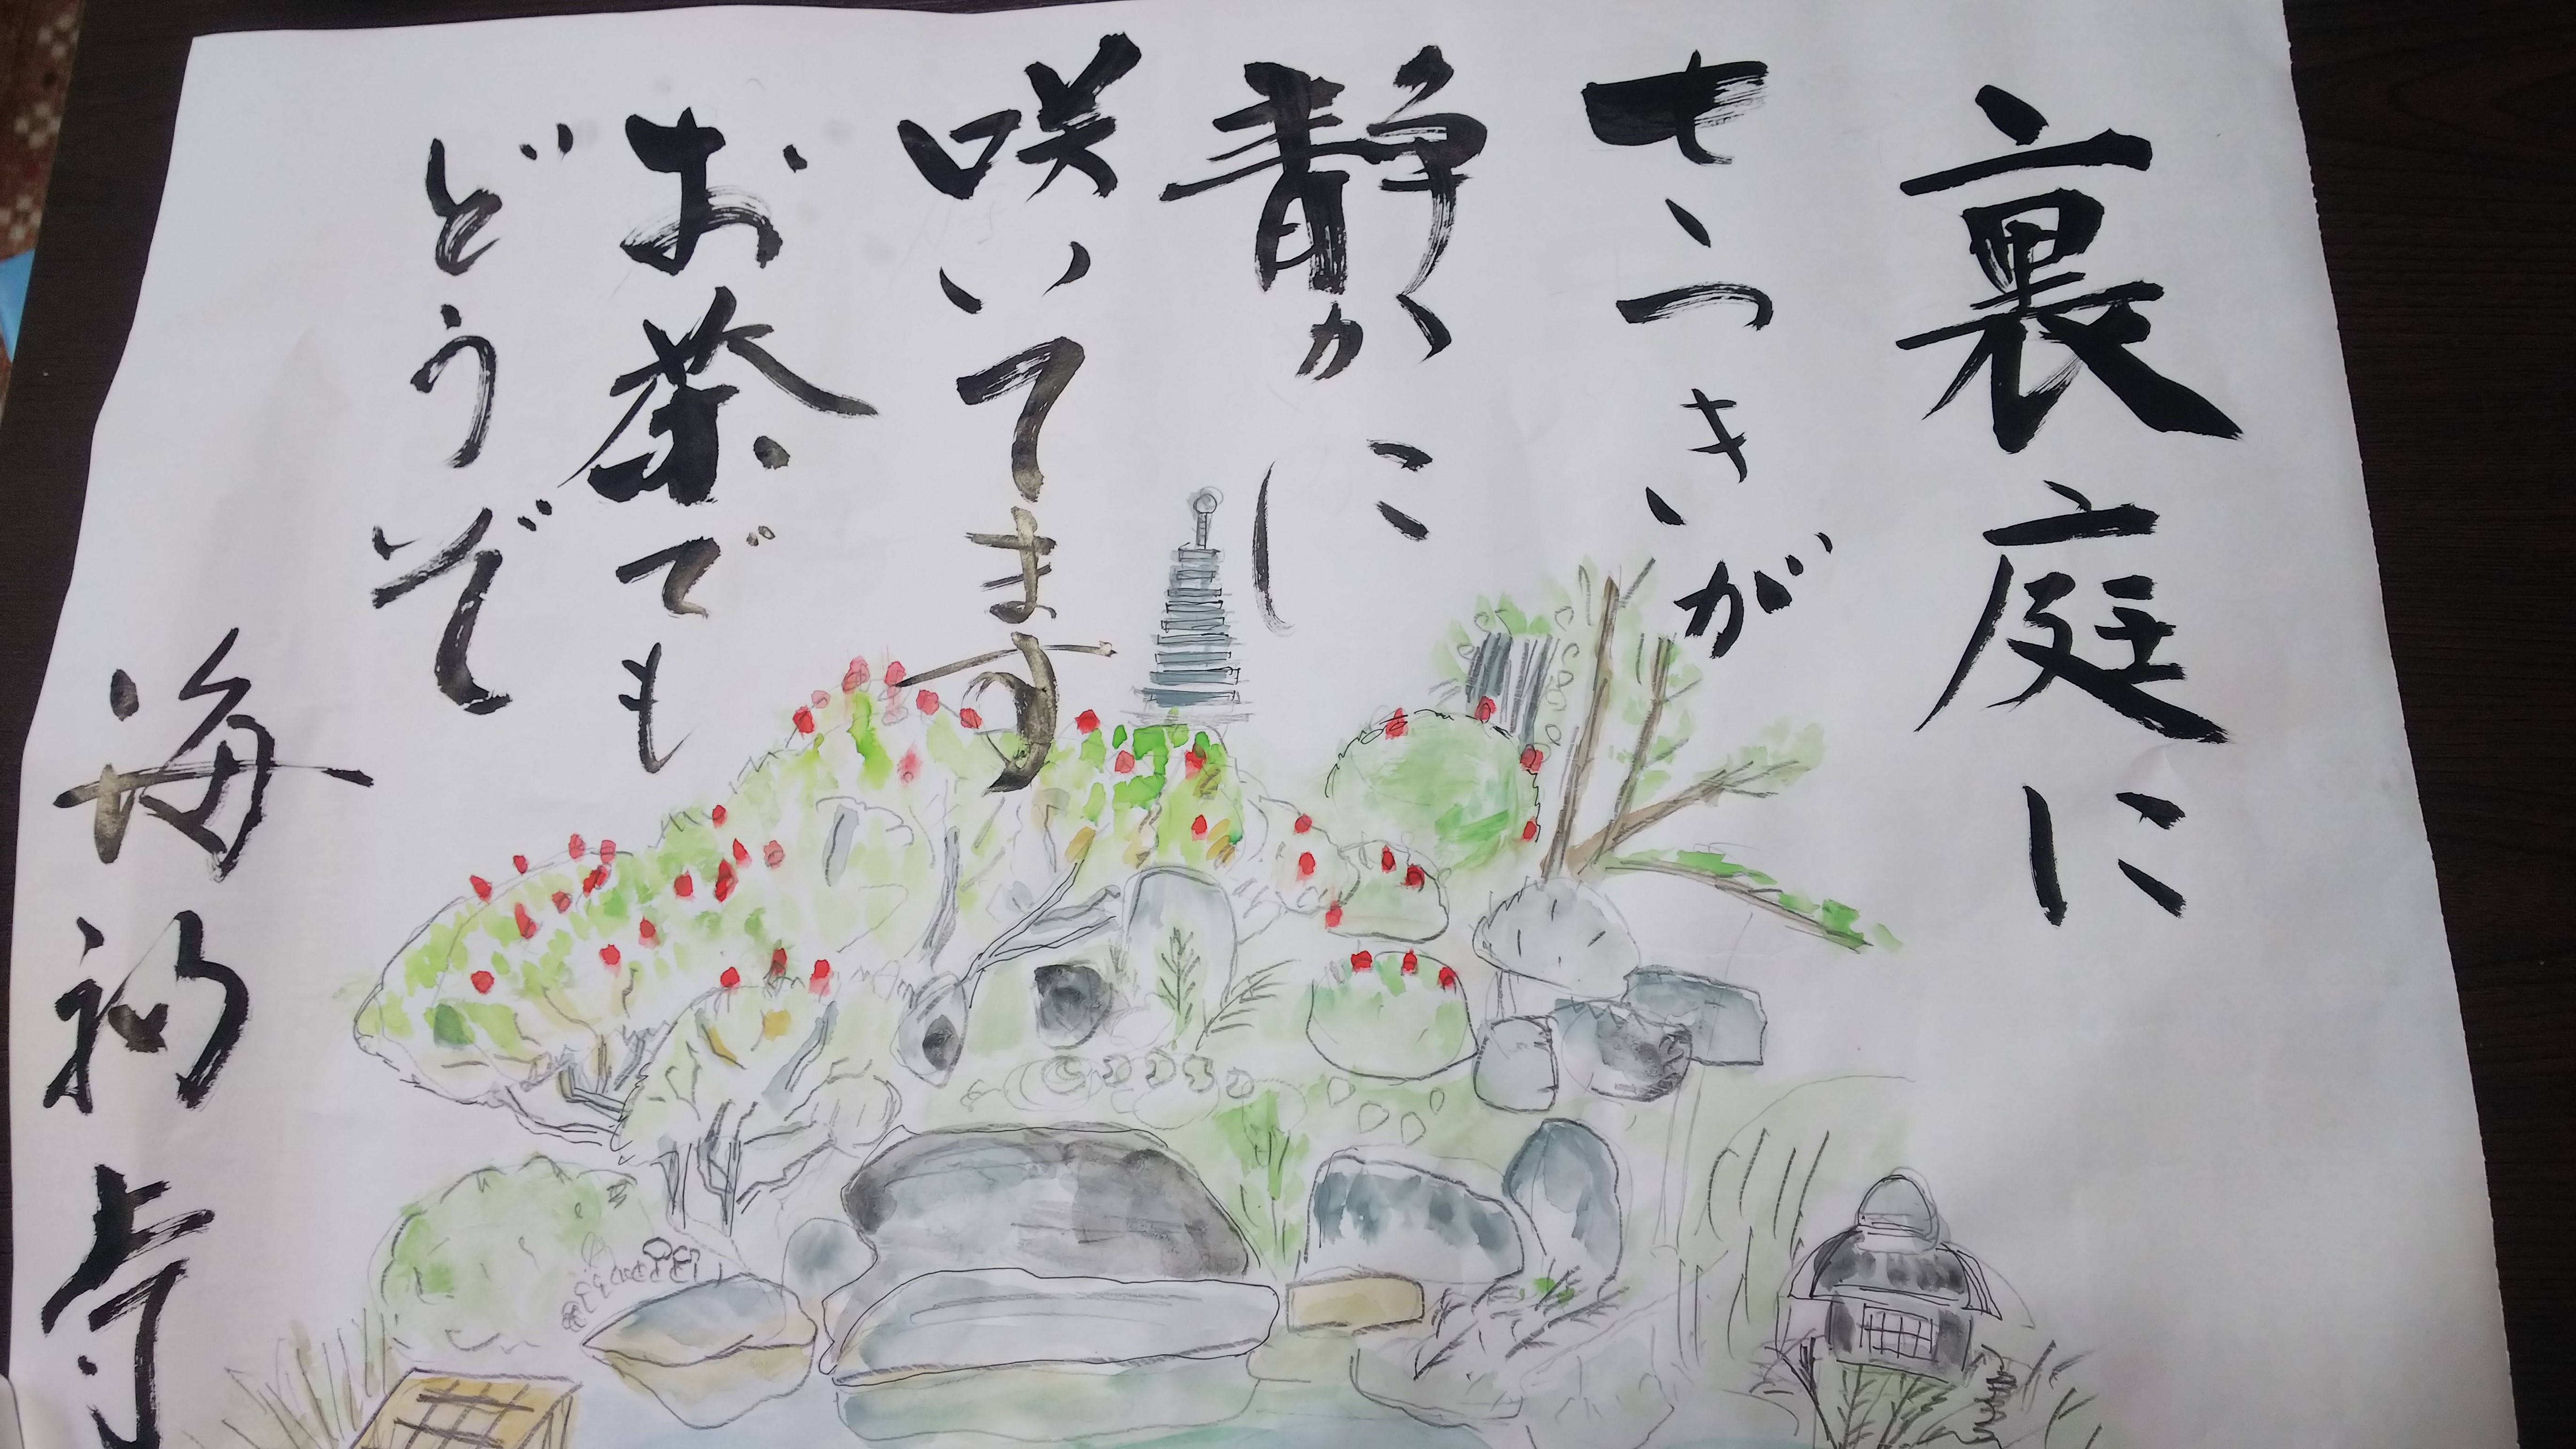 裏庭に
さつきが
静かに
咲いてます
お茶でも
どうぞ
海初寺